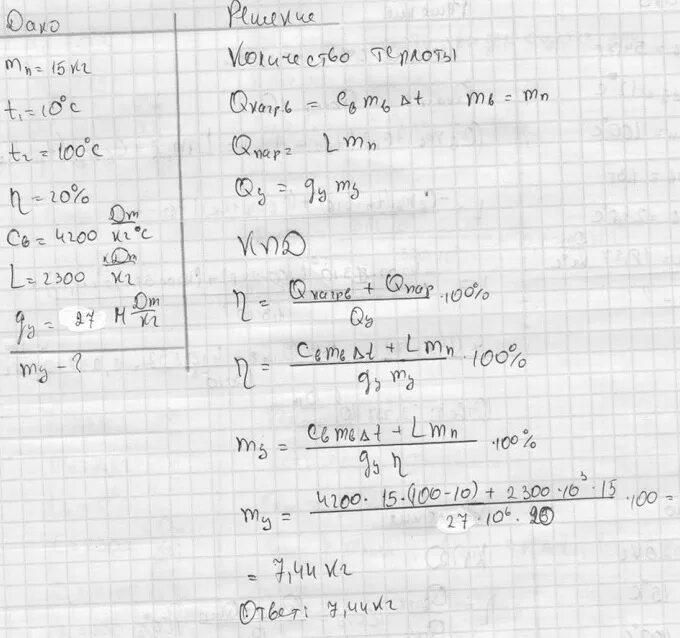 Дано
mп = 15 кг
t₁ = 10°C
t₂ = 100°C
η = 20%
Cв = 4200 Дж/кг°C
L = 2300 кДж/кг
qy = 27 М Дж/кг
my - ?
Решение
Количество теплоты
Qнагрв = Cв mв Δt   mв = mп
Qпар = L mп
Qy = qy my
КПД
η = (Qнагрв + Qпар)/Qy · 100%
η = (Cв mв Δt + L mп)/(qy my) · 100%
my = (Cв mв Δt + L mп)/(qy η) · 100%
my = (4200 · 15 · (100-10) + 2300 · 10³ · 15)/(27 · 10⁶ · 20) · 100 =
= 7,44 кг
Ответ: 7,44 кг